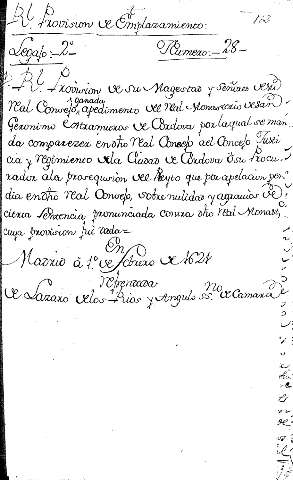 Rl. Provision de Emplazamiento.
Legajo. 2º Numero. 28.
Rl. Provision de Su Magestad y Señores de su
Real Consejo, ganada apedimento de Real Monasterio de San
Geronimo extramuros de Cordova por laqual se man
da comparezer en dho Real Consejo ael Consejo Justi
cia y regimiento de la Ciudad de Cordova ô su Procu
rador ala prosequcion del Pleyto que por apelacion pen
dia en dho Real Consejo, sobre nulidad y agravios de
cierta sentencia pronunciada contra dho Real Monasº,
cuya provision fue dada=
En
Madrid à 1º de febrero de 1624
refrendada
de Lazaro de los Rios y Angulo ssno. de Camara